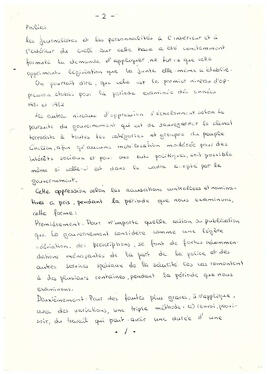 - 2 -
Préface
Les journalistes et les personnalités à l'intérieur et à
l'extérieur de
formuler la demande d'appliquer ne fut-ce que cette
législation que la junte elle même a établie.
On pourrait dire, que celle-ci est le premier niveau d'op-
pression établi pour la période examinée des années
1971 et 1972
Les autres niveaux d'oppression s'échelonnent selon la
poursuite du gouvernement qui est de sauvegarder le climat
terroriste à toutes les catégories et groupes du peuple
Chilien, afin qu'aucune mobilisation modérée pour des
intérêts sociaux et pour des buts politiques, soit possible
même si celle-ci est dans le cadre accepté par le
gouvernement.
Cette oppression selon les accusations contrôlées et nomina-
tives a pris, pendant la période que nous examinons,
cette forme:
Premièrement: Pour n'importe quelle action ou publication
que le gouvernement considère comme une légère
"déviation" des prescriptions, se font de fortes recomman-
dations menaçantes de la part de la police et des
autres services spéciaux de la sécurité. Ces cas remontent
à des plusieurs centaines, pendant la période que nous
examinons.
Deuxièmement: Pour des fautes plus graves, s'applique,
avec des variations, une triple méthode: a) renvoi, provi-
soire, du travail qui peut avoir une durée d'une
- / -